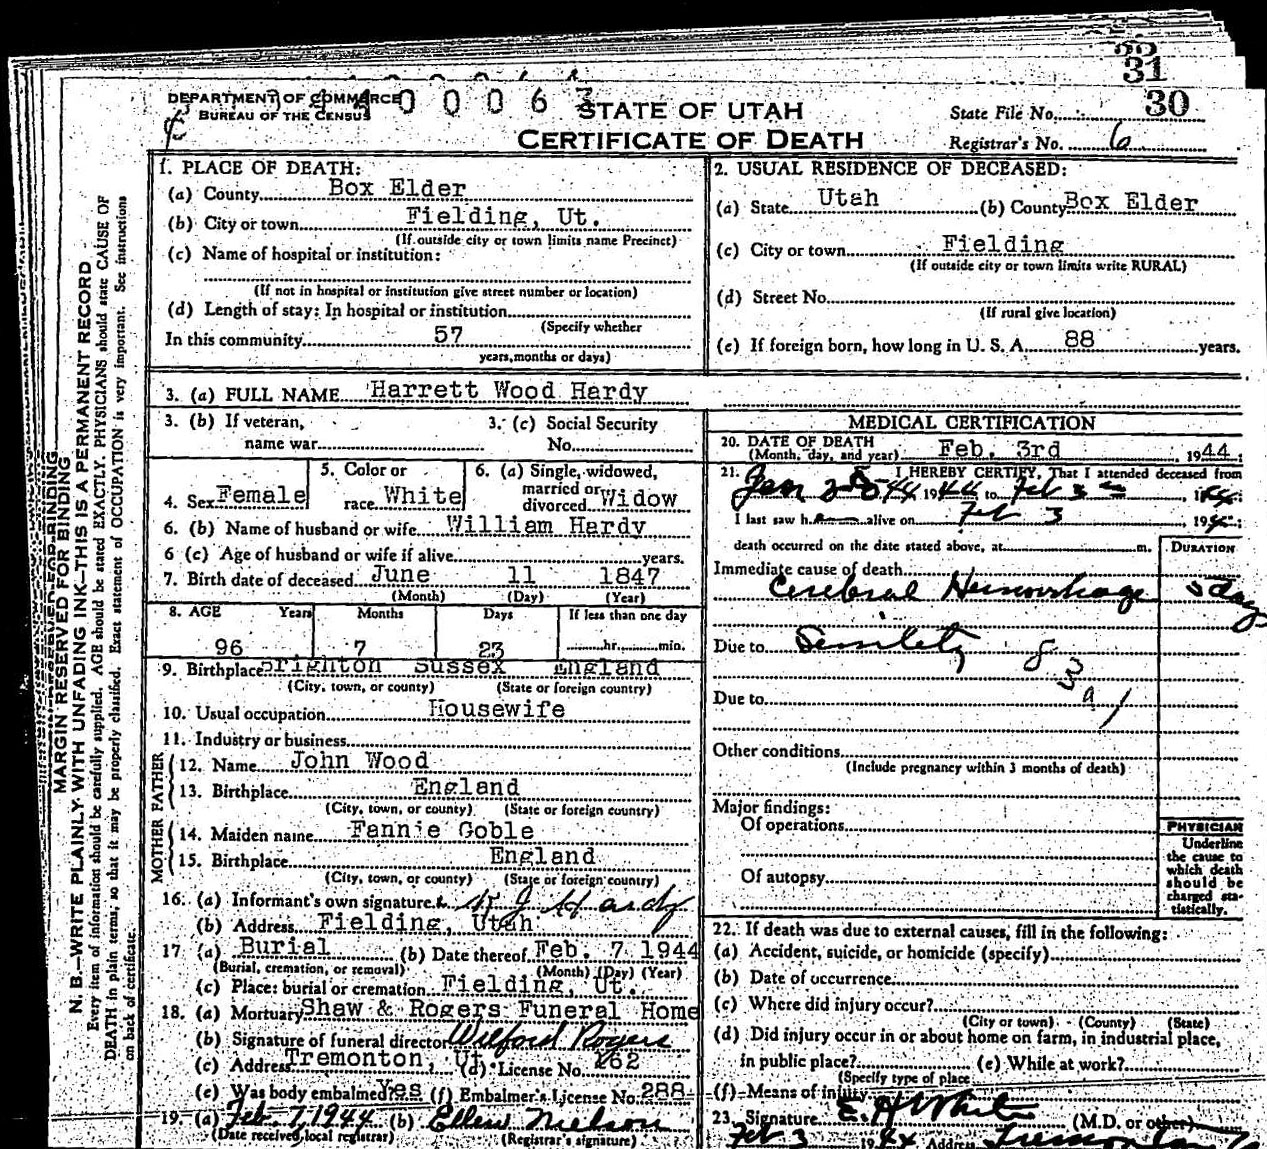 33
31
DEPARTMENT OF COMMERCE
BUREAU OF THE CENSUS
STATE OF UTAH
CERTIFICATE OF DEATH
State File No. 30
Registrar's No. 6
MARGIN RESERVED FOR BINDING
N. B.—WRITE PLAINLY WITH UNFADING INK—THIS IS A PERMANENT RECORD
Every item of information should be carefully supplied. AGE should be stated EXACTLY. PHYSICIANS should state CAUSE OF
DEATH in plain terms, so that it may be properly classified. Exact statement of OCCUPATION is very important. See instructions
on back of certificate.
1. PLACE OF DEATH:
(a) County Box Elder
(b) City or town Fielding, Ut.
(If outside city or town limits name Precinct)
(c) Name of hospital or institution:
(If not in hospital or institution give street number or location)
(d) Length of stay: In hospital or institution
(Specify whether
In this community 57
years, months or days)
2. USUAL RESIDENCE OF DECEASED:
(a) State Utah (b) County Box Elder
(c) City or town Fielding
(If outside city or town limits write RURAL)
(d) Street No.
(If rural give location)
(e) If foreign born, how long in U. S. A. 88 years.
3. (a) FULL NAME Harrett Wood Hardy
3. (b) If veteran, name war
3. (c) Social Security No.
4. Sex Female
5. Color or race White
6. (a) Single, widowed, married or divorced Widow
6. (b) Name of husband or wife William Hardy
6 (c) Age of husband or wife if alive years.
7. Birth date of deceased June 11 1847
(Month) (Day) (Year)
8. AGE Years Months Days If less than one day
96 7 23 hr. min.
9. Birthplace Brighton Sussex England
(City, town, or county) (State or foreign country)
10. Usual occupation Housewife
11. Industry or business
FATHER
12. Name John Wood
13. Birthplace England
(City, town, or county) (State or foreign country)
MOTHER
14. Maiden name Fannie Goble
15. Birthplace England
(City, town, or county) (State or foreign country)
16. (a) Informant's own signature J Hardy
(b) Address Fielding, Utah
17. (a) Burial (b) Date thereof Feb. 7 1944
(Burial, cremation, or removal) (Month) (Day) (Year)
(c) Place: burial or cremation Fielding, Ut.
18. (a) Mortuary Shaw & Rogers Funeral Home
(b) Signature of funeral director Wilford Rogers
(c) Address Tremonton, Ut. (d) License No. 162
(e) Was body embalmed? Yes (f) Embalmer's License No. 288
19. (a) Feb. 7, 1944 (b) Ellen Nielson
(Date received local registrar) (Registrar's signature)
MEDICAL CERTIFICATION
20. DATE OF DEATH
(Month, day, and year) Feb. 3rd, 1944;
21. I HEREBY CERTIFY, That I attended deceased from
Jan 1944 to Feb 3, 1944;
I last saw her alive on Feb 3, 194
death occurred on the date stated above, at m.
DURATION
Immediate cause of death
Cerebral Hemorrhage 5 days
Due to Senility
83
a 1
Due to
Other conditions
(Include pregnancy within 3 months of death)
Major findings:
Of operations
Of autopsy
PHYSICIAN
Underline
the cause to
which death
should be
charged sta-
tistically.
22. If death was due to external causes, fill in the following:
(a) Accident, suicide, or homicide (specify)
(b) Date of occurrence
(c) Where did injury occur?
(City or town) (County) (State)
(d) Did injury occur in or about home on farm, in industrial place,
in public place? (e) While at work?
(Specify type of place
(f) Means of injury
23. Signature E. H White (M.D. or other)
Feb 3 1944 Address Tremonton